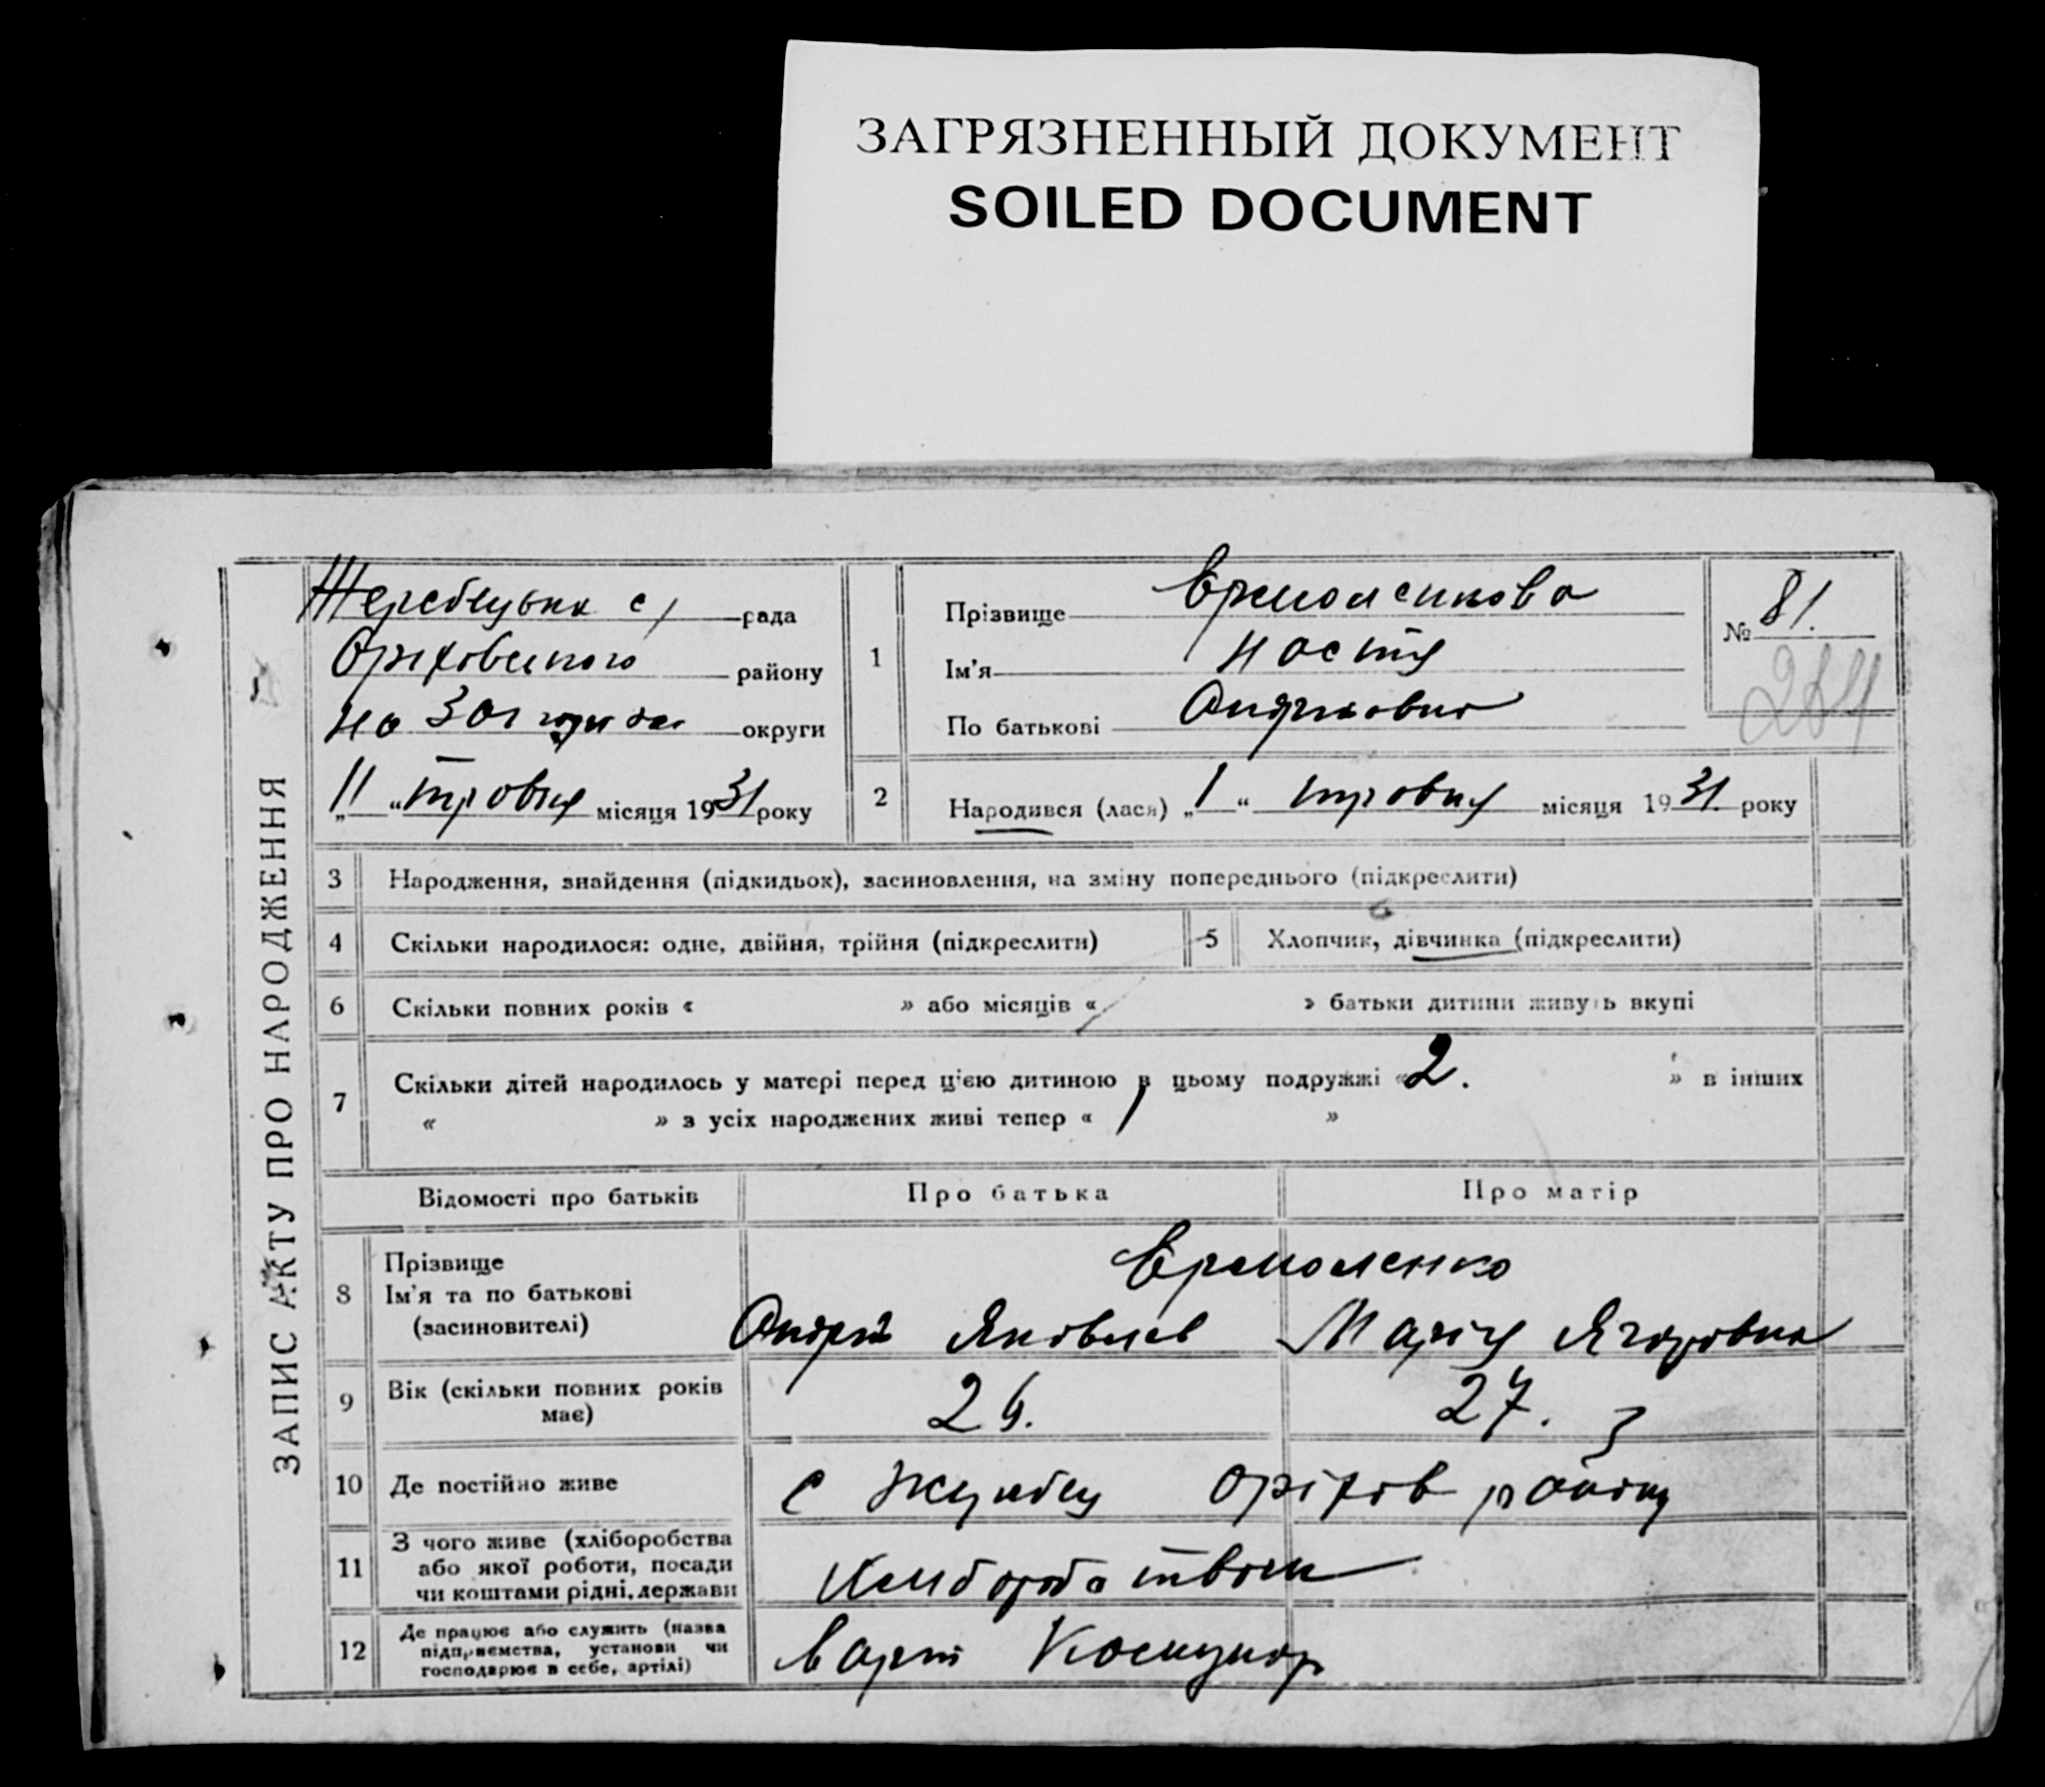 ЗАГРЯЗНЕННЫЙ ДОКУМЕНТ
SOILED DOCUMENT
ЗАПИС АКТУ ПРО НАРОДЖЕННЯ
Жеребецька с/ рада
Оріховського району
округи
„11“ травня місяця 1931 року
1
Прізвище Ермоленкова
Ім'я Настя
По батькові Андріывна
№ 81.
284
2 Народився (лася) „1“ травня місяця 1931. року
3 Народження, знайдення (підкидьок), засиновлення, на зміну попереднього (підкреслити)
4 Скільки народилося: одне, двійня, трійня (підкреслити)
5 Хлопчик, дівчинка (підкреслити)
6 Скільки повних років « » або місяців « » батьки дитини живуть вкупі
7 Скільки дітей народилось у матері перед цією дитиною в цьому подружжі «2. » в інших
« » з усіх народжених живі тепер « »
Відомості про батьків Про батька Про матір
8 Прізвище
Ім'я та по батькові
(засиновителі)
Ермоленко
Андрій Яковлев Марія Ягоровна
9 Вік (скільки повних років має) 26. 27.
10 Де постійно живе с Жеребец Оріхів району
11 З чого живе (хліборобства
або якої роботи, посади
чи коштами рідні, держави
Хліборобством
12 Де працює або служить (назва
підприємства, установи чи
господарює в себе, артілі)
В арт